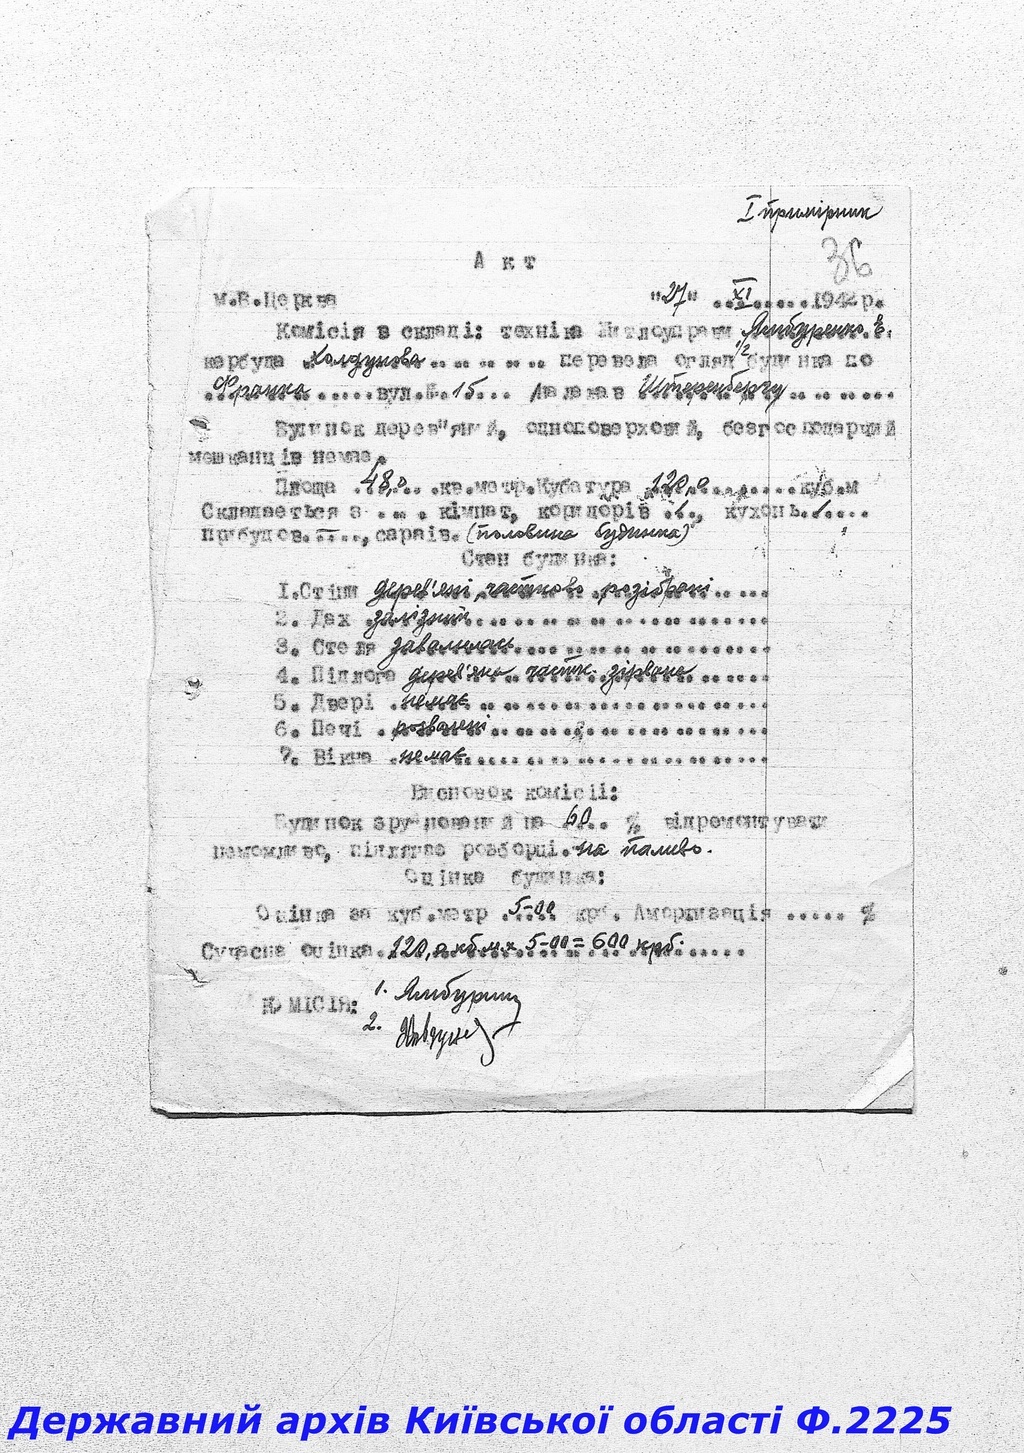 I примірник
36
Акт
м.Б.Церква "27" ..XI.....1942р.
Комісія в складі: техніка Житлоуправи Ямбуренко В.
кербуда Холдунова........ перевела огляд 1/2 будинка по
.Франка......вул.№.15... належав Штеренбергу........
Будинок дерев"яний, одноповерховий, безгосподарчий
мешканців немає.
Площа .48,0...кв.метр.Кубатура 120,0.........куб.м
Складається з .-.. кімнат, коридорів .1., кухонь.1....
прибудов.—..,сараїв.(половина будинка)
Стан будинка:
1.Стіни дерев'яні, частково розібрані.....
2. Дах залізний..................
3. Стеля завалилась..................
4. Підлога дерев'яна частк. зірвана......
5. Двері .немає..................
6. Печі .розвалені..................
7. Вікна .немає..................
Висновок комісії:
Будинок зруйнований на 60.. % відремонтувати
неможливо, підлягає розборці. на паливо.
Оцінка будинка:
Оцінка за куб.метр 5-00 крб. Амортизація ..... %
Сучасна оцінка.120,0 кб.м х 5-00 = 600 крб.......
КОМІСІЯ: 1.
2.
Державний архів Київської області Ф.2225